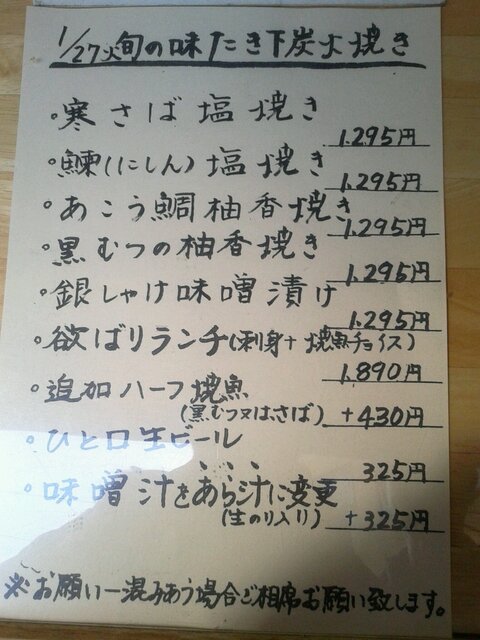 1/27火 旬の味 たき下炭火焼き
・寒さば塩焼き
1,295円
・鰊(にしん)塩焼き
1,295円
・あこう鯛柚香焼き
1,295円
・黒むつの柚香焼き
1,295円
・銀しゃけ味噌漬け
1,295円
・欲ばりランチ(刺身+焼魚チョイス)
1,890円
・追加ハーフ焼魚
(黒むつ又は、さば)
+430円
・ひと口生ビール
325円
・味噌汁をあら汁に変更
(生のり入り)
+325円
※お願い一混みあう場合ご相席お願い致します。